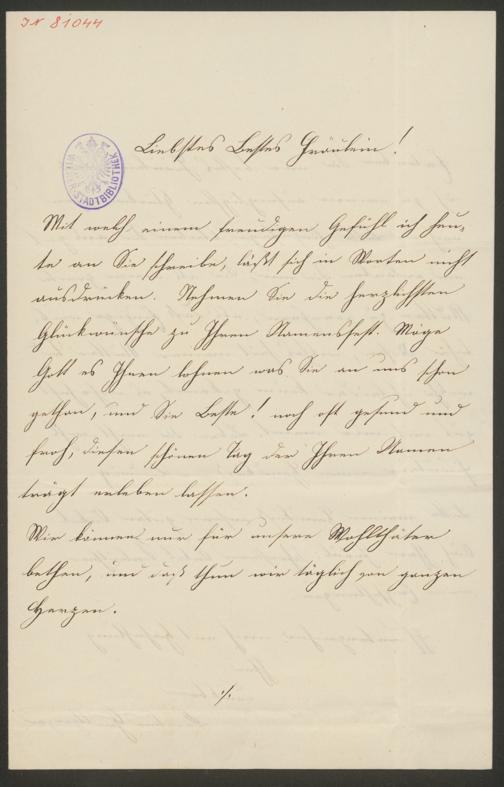 IN 81044
WIENER STADTBIBLIOTHEK
Liebstes Bestes Fräulein!
Mit welch einem freudigen Gefühl ich heu-
te an Sie schreibe, läßt sich in Worten nicht
ausdrücken. Nehmen Sie die herzlichsten
Glückwünsche zu Ihren Namensfest. Möge
Gott es Ihnen lohnen was Sie an uns schon
gethan, und Sie Beste! noch oft gesund und
froh, diesen schönen Tag der Ihren Namen
trägt erleben lassen.
Wir können nur für unsere Wohlthäter
bethen, und daß thun wir täglich von ganzen
Herzen.
./.